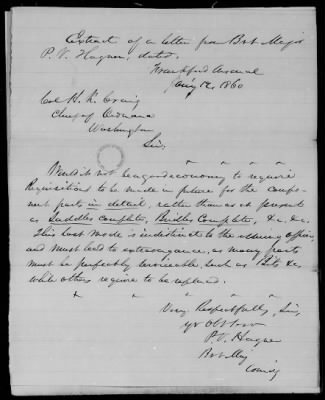 Extract of a letter from Bvt Major
P. V. Hagner, dated,
Frankford Arsenal
Jany 12, 1860
Col H. K. Craig
Chief of Ordnance
Washington
Sir,
" " " "
Would it not be a good economy to require
Requisitions to be made in future for the compo-
nent parts in detail, rather than as at present
as Saddles complete, Bridles Complete, &c. &c.
This last mode is indistinct to the issuing officer,
and must lead to extravagance, as many parts
must be perfectly serviceable, such as Bits &c
while others require to be replaced.
" " " "
Very Respectfully, Sir,
yr Obt Ser
P. V. Hagner
Bvt Maj
Comdg